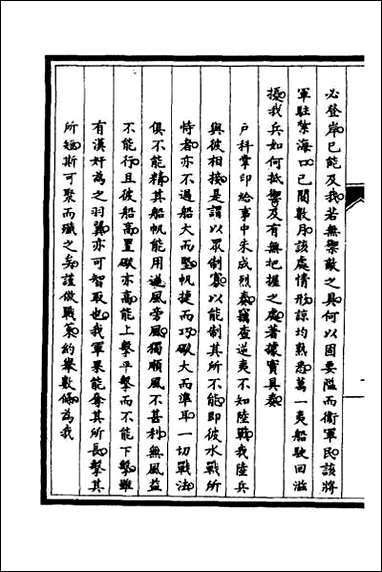 必登岸已能及我若無禦敵之具何以固要隘而衛軍民該將
軍駐紮海口已閱數月該處情形諒均熟悉萬一夷船駛回滋
擾我兵如何抵禦及有無把握之處著據實具奏
戶科掌印給事中朱成烈奏竊查逆夷不知陸戰我陸兵
與彼相接是謂以眾制寡以能制其所不能即彼水戰所
恃者亦不過船大而堅帆捷而巧礮大而準耳一切戰法
俱不能精其船帆能用逆風旁風獨順風不甚利無風益
不能行且彼船高置礮亦高能上擊平擊而不能下擊雖
有漢奸為之羽翼亦可智取也我軍果能奪其所長擊其
所短斯可聚而殲之矣謹倣戰策約舉數條為我